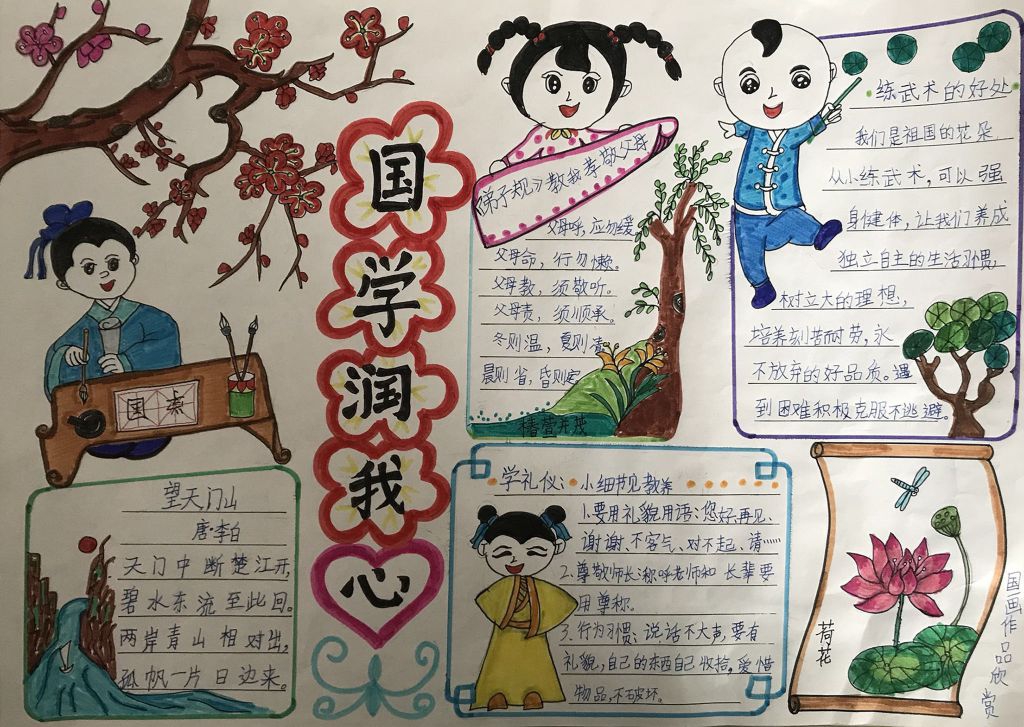 国学润我心
国
望天门山
唐·李白
天门中断楚江开，
碧水东流至此回。
两岸青山相对出，
孤帆一片日边来。
弟子规》教我孝敬父母
父母呼，应勿缓
父母命，行勿懒。
父母教，须敬听。
父母责，须顺承。
冬则温，夏则清
晨则省，昏则定
练武术的好处
我们是祖国的花朵
从小练武术，可以强
身健体，让我们养成
独立自主的生活习惯，
树立大的理想，
培养刻苦耐劳，永
不放弃的好品质。遇
到困难积极克服不逃避。
学礼仪：小细节见教养
1.要用礼貌用语：您好、再见、
谢谢、不客气、对不起、请……
2.尊敬师长：称呼老师和长辈要
用尊称。
3.行为习惯：说话不大声，要有
礼貌，自己的东西自己收拾，爱惜
物品，不破坏。
荷花
国画作品欣赏